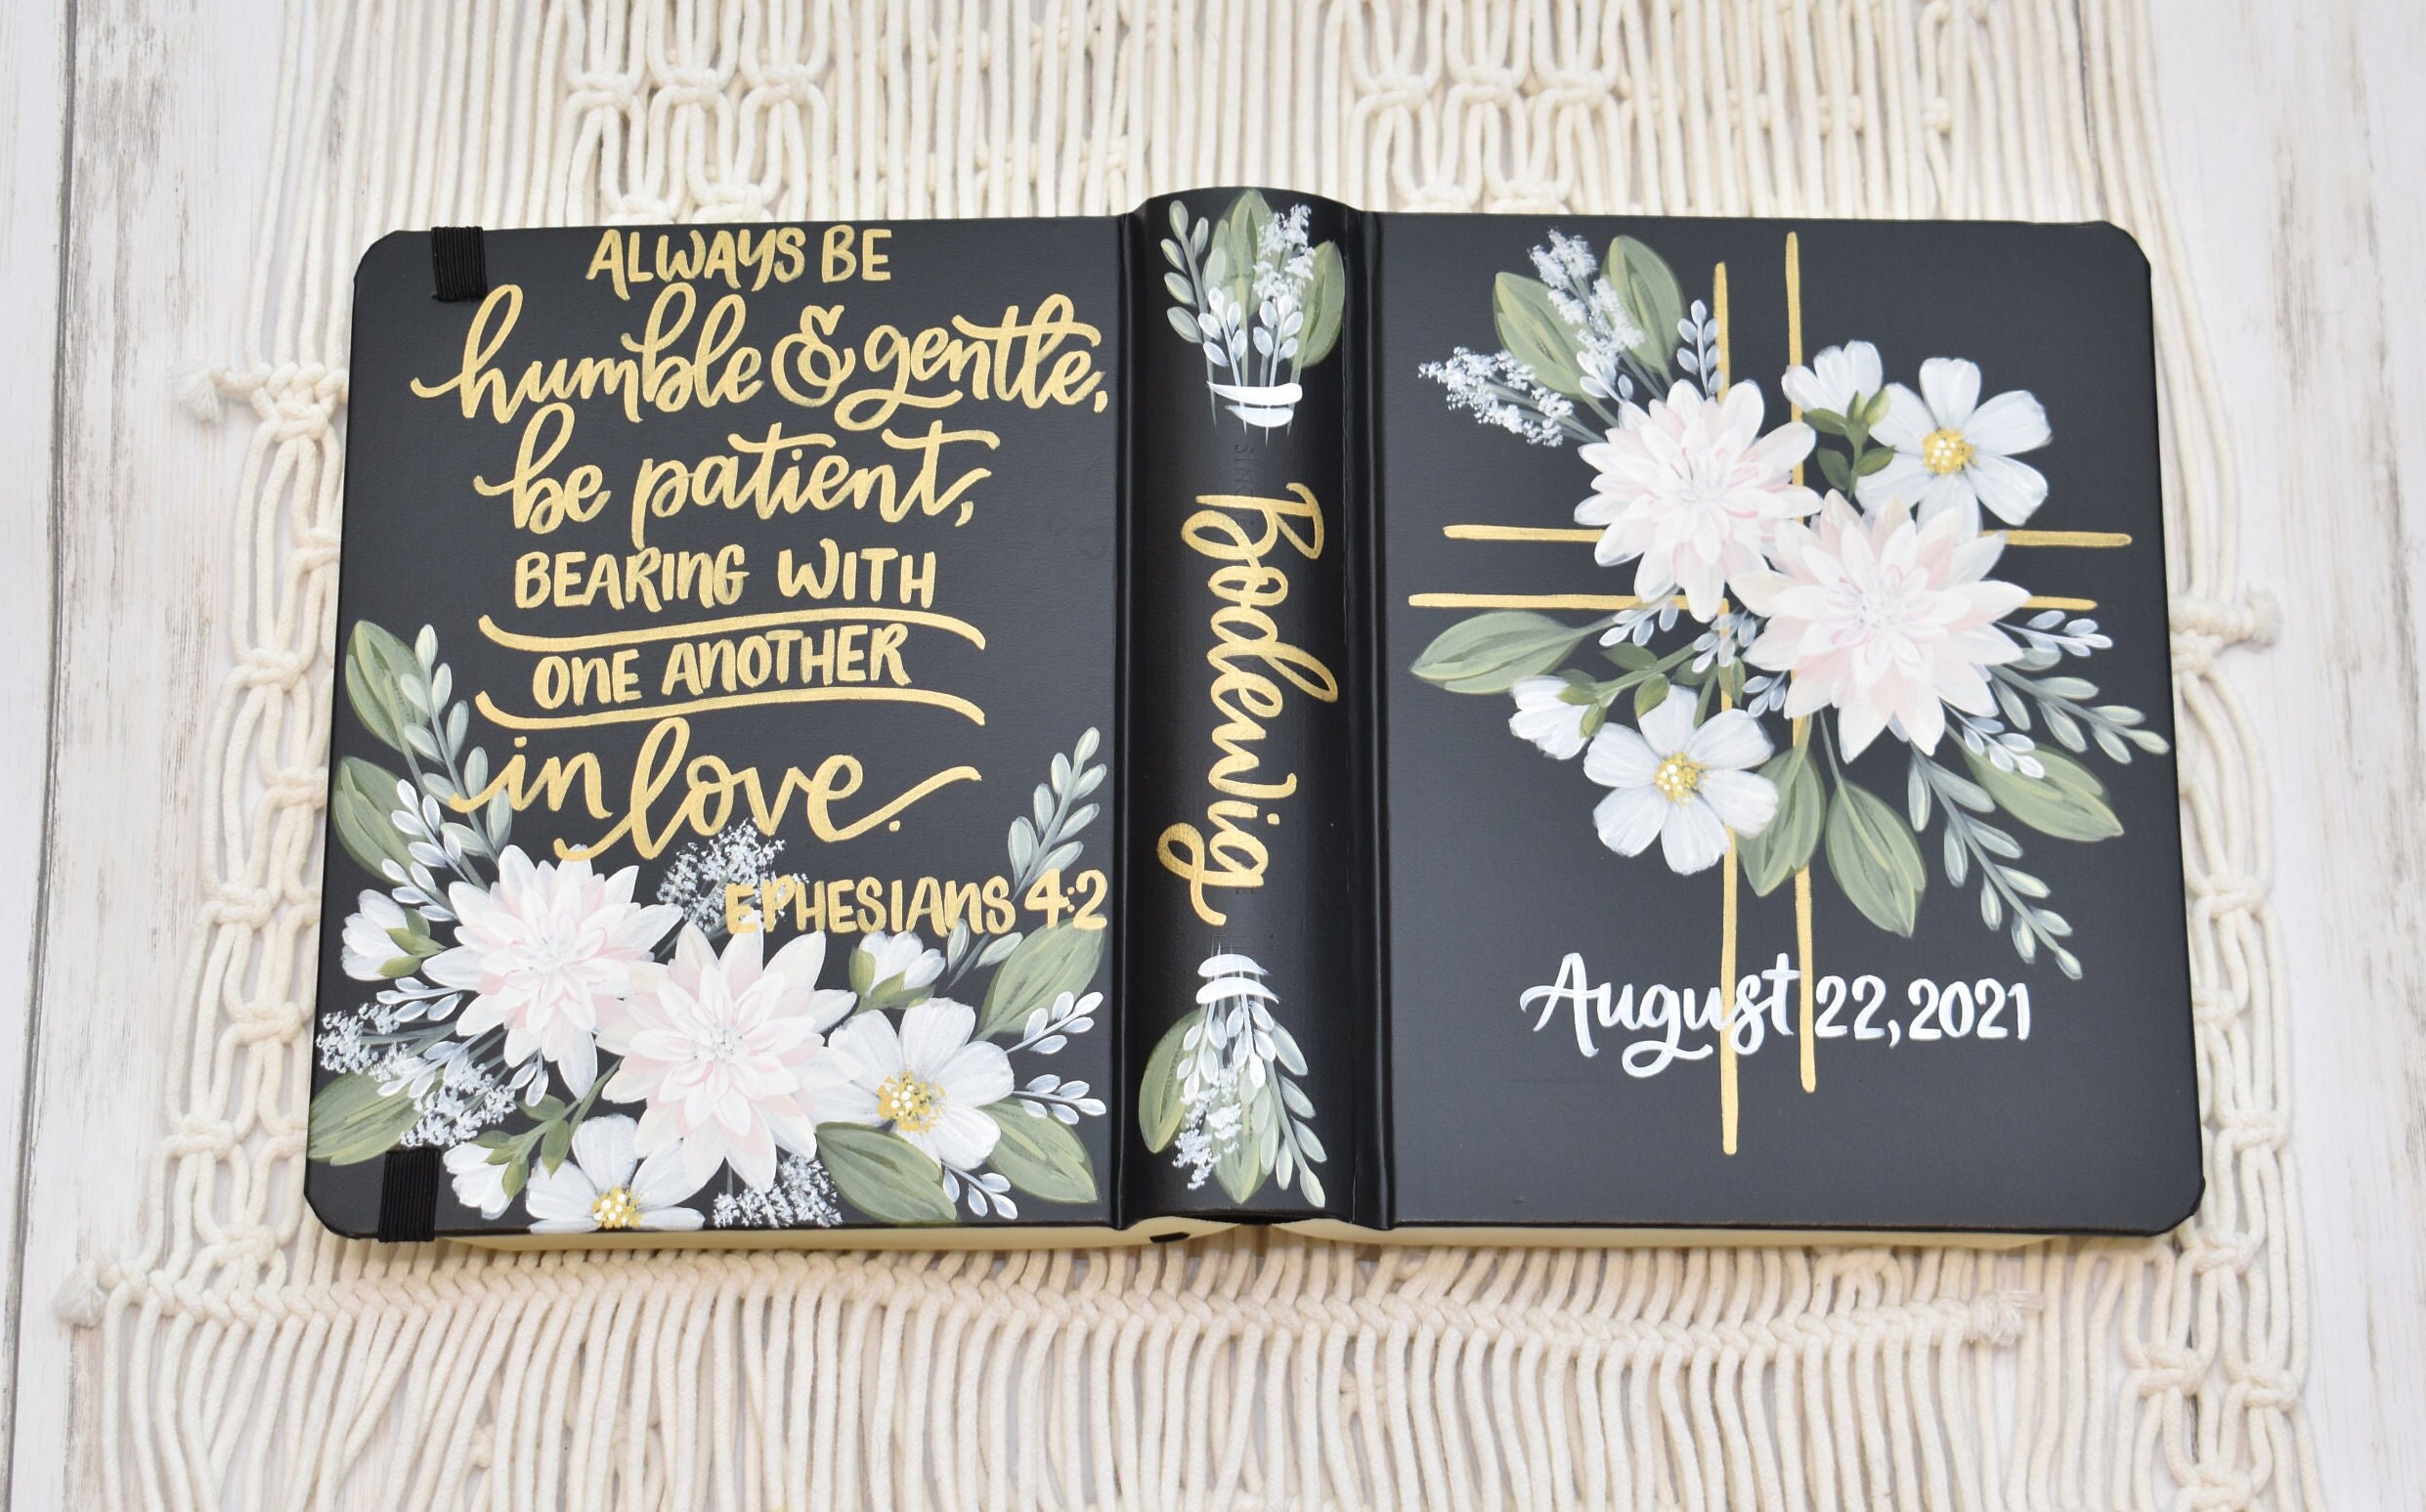 ALWAYS BE
humble & gentle,
be patient,
BEARING WITH
ONE ANOTHER
in love.
EPHESIANS 4:2
Bodenwig
August 22, 2021